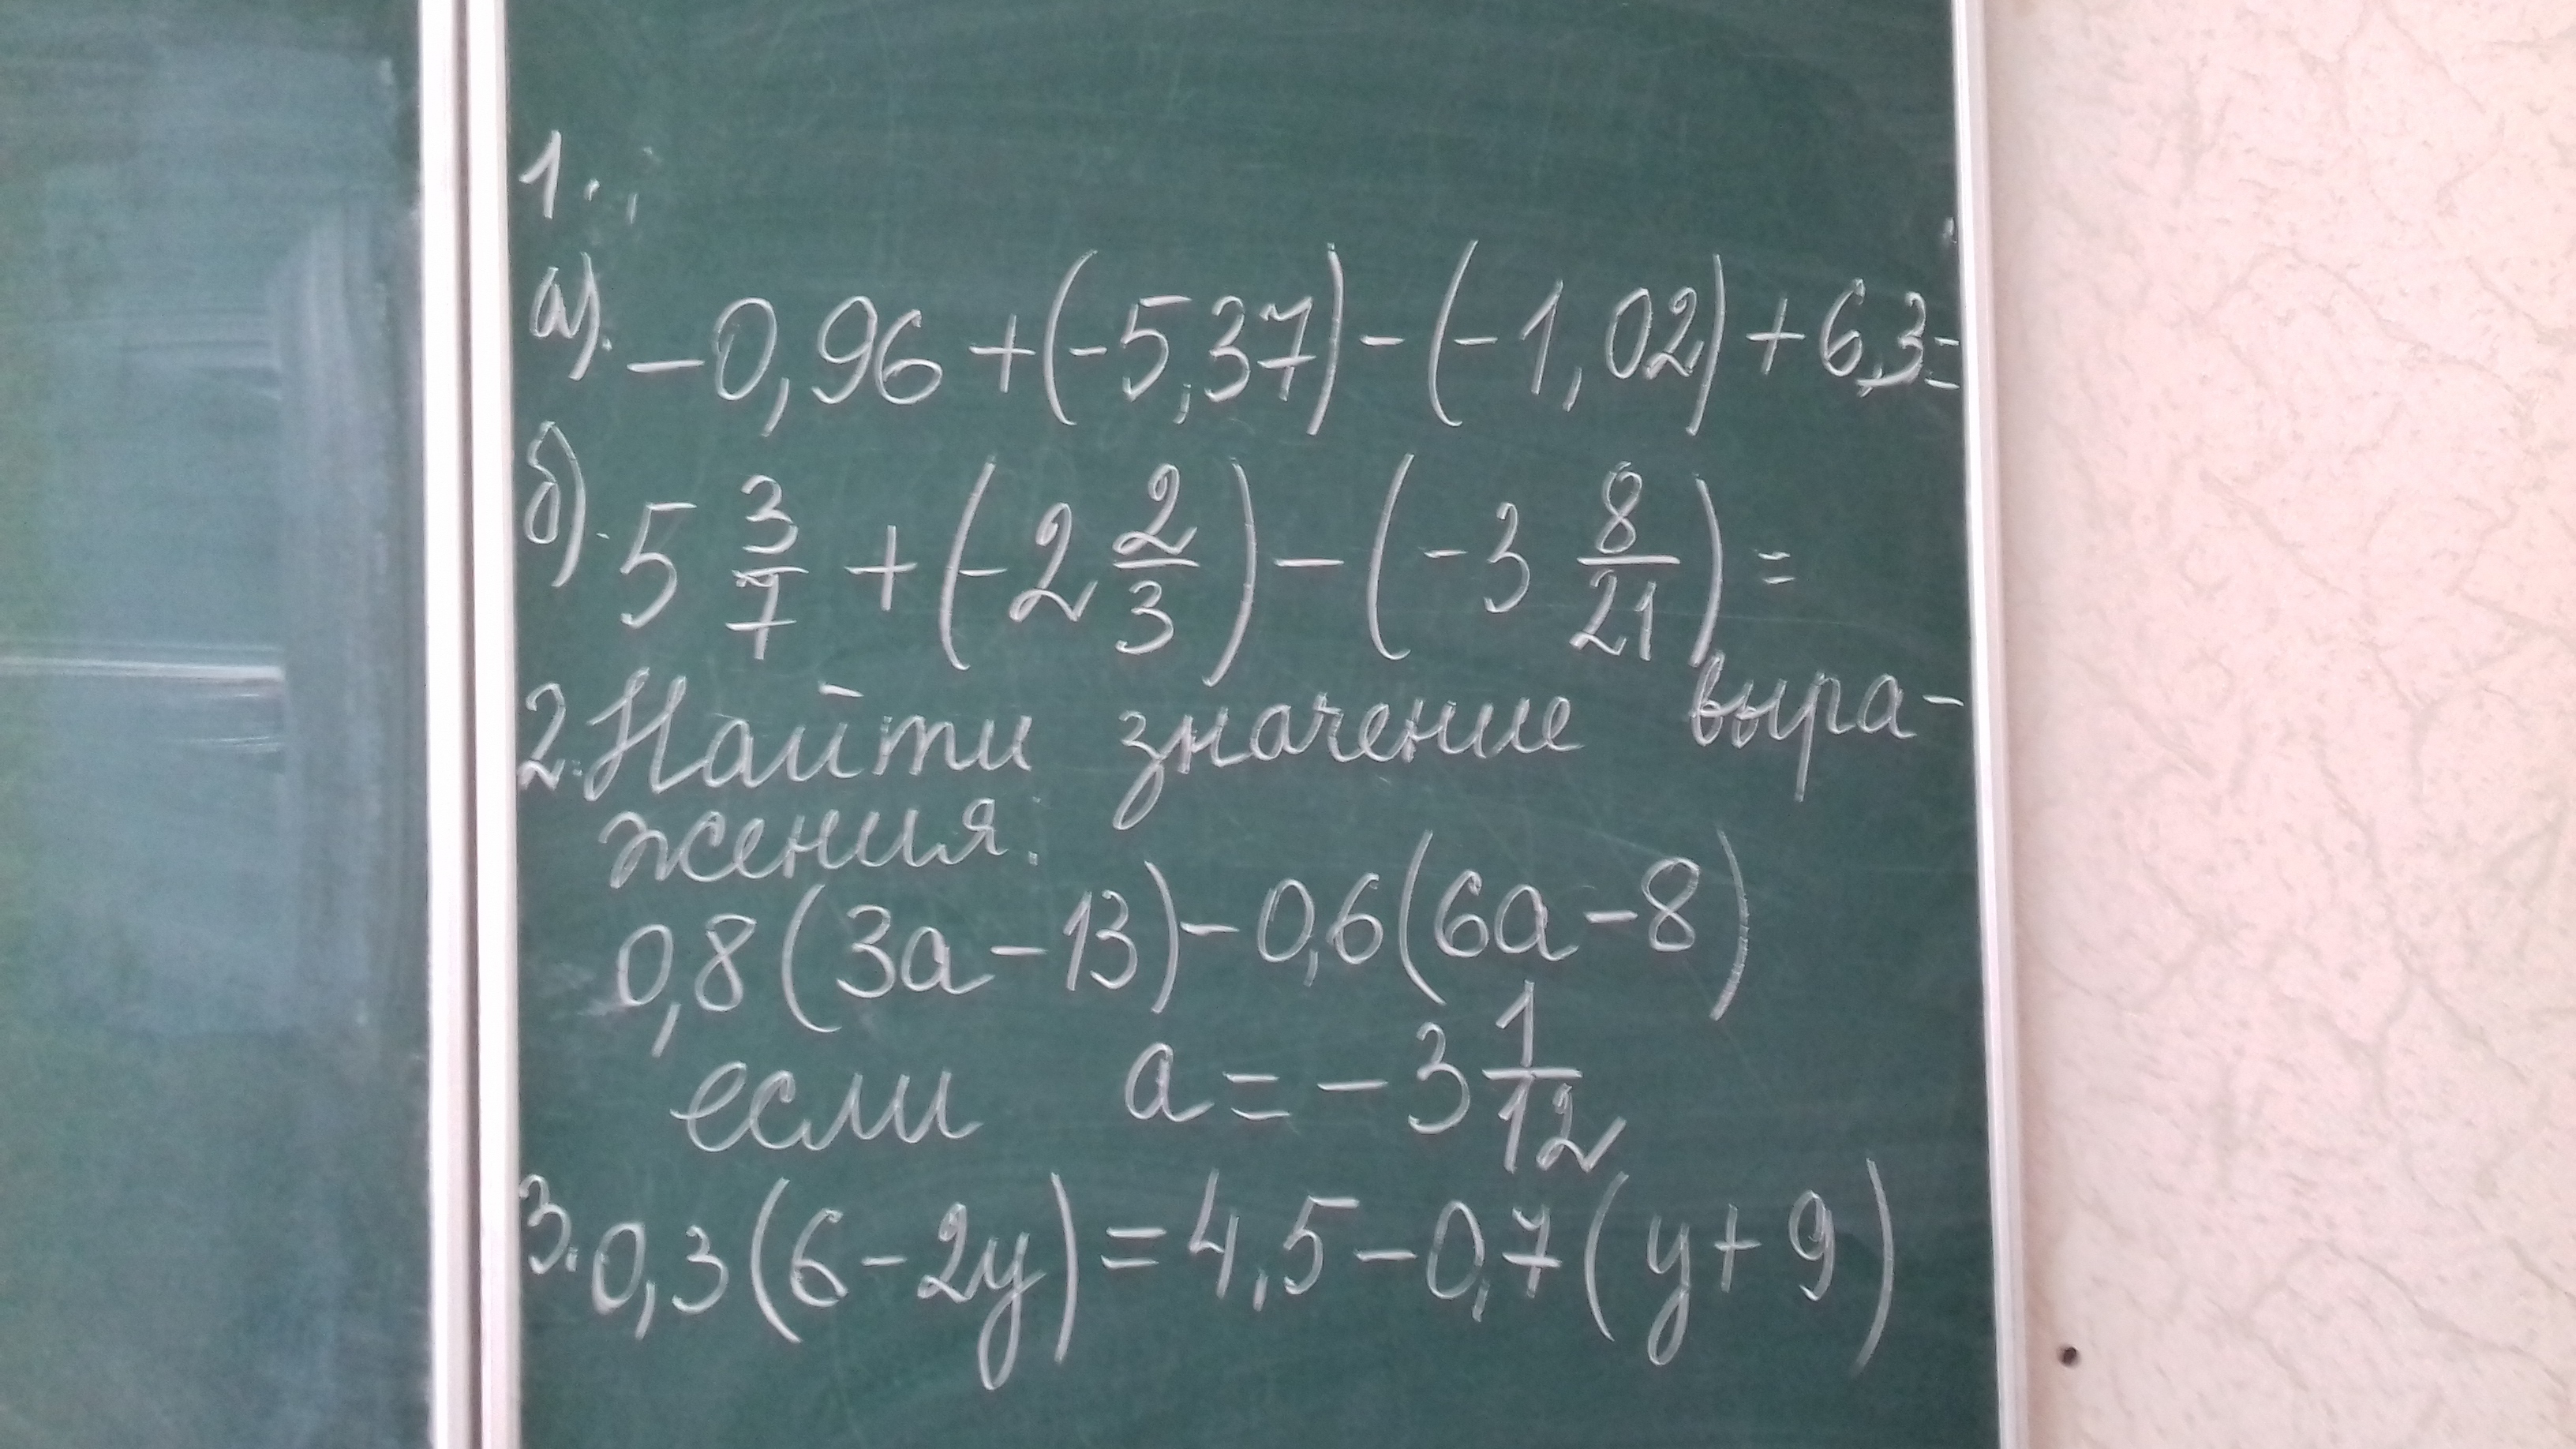 1.
а). -0,96 + (-5,37) - (-1,02) + 6,3 =
б). 5 3/7 + (-2 2/3) - (-3 8/21) =
2. Найти значение выра-
жения.
0,8 (3а - 13) - 0,6 (6а - 8)
если а = - 3 1/12
3. 0,3 (6 - 2y) = 4,5 - 0,7 (y + 9)